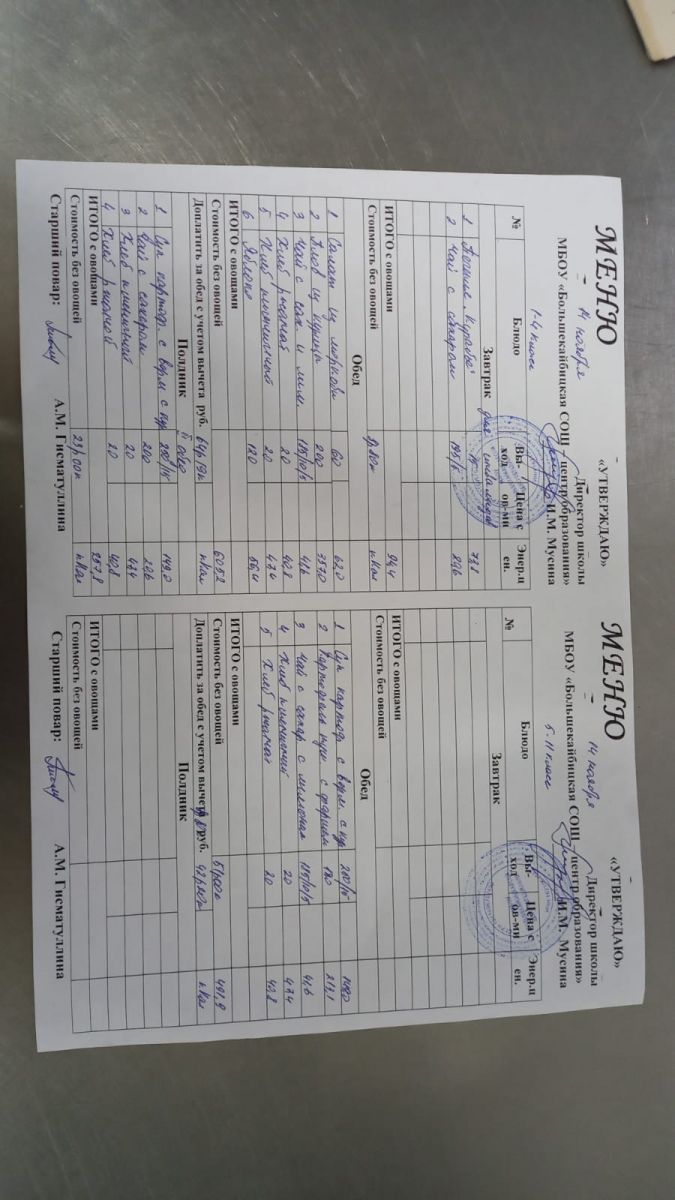 «УТВЕРЖДАЮ»
Директор школы
МБОУ «Большекайбицкая СОШ – центр образования»
И.М. Мусина
МЕНЮ
14 ноября
1-4 класс
№ Блюдо Вы-ход Цена с ов-ми Энер.ц ен.
Завтрак для
1 73,1
2 Чай с сахаром 195/5 29,6
ИТОГО с овощами 94,4
Стоимость без овощей кКал
Обед
1 Салат из моркови 60 62,0
2 Плов из курицы 200 357,0
3 Чай с сах и лим. 185/10/5 41,6
4 Хлеб ржаной 20 40,8
5 Хлеб пшеничный 20 47,4
6 Яблоко 120 56,4
ИТОГО с овощами
Стоимость без овощей 605,2
Доплатить за обед с учетом вычета руб. 64р19к кКал
Полдник II обед
1 Суп картоф. с верм. с кур 200/15 149,0
2 Чай с сахаром 200 20,6
3 Хлеб пшеничный 20 47,4
4 Хлеб ржаной 20 40,8
ИТОГО с овощами 257,8
Стоимость без овощей 23р,00к кКал
Старший повар: А.М. Гисматуллина
«УТВЕРЖДАЮ»
Директор школы
МБОУ «Большекайбицкая СОШ – центр образования»
И.М. Мусина
МЕНЮ
14 ноября
5-11 класс
№ Блюдо Вы-ход Цена с ов-ми Энер.ц ен.
Завтрак
ИТОГО с овощами
Стоимость без овощей
Обед
1 Суп картоф. с верм. с кур 200/15 149,0
2 Картофель туш с фаршем 213,1
3 Чай с сахар с лимоном 185/10/5 41,6
4 Хлеб пшеничный 20 47,4
5 Хлеб ржаной 20 40,8
ИТОГО с овощами
Стоимость без овощей 491,9
Доплатить за обед с учетом вычета руб. кКал
Полдник
ИТОГО с овощами
Стоимость без овощей
Старший повар: А.М. Гисматуллина